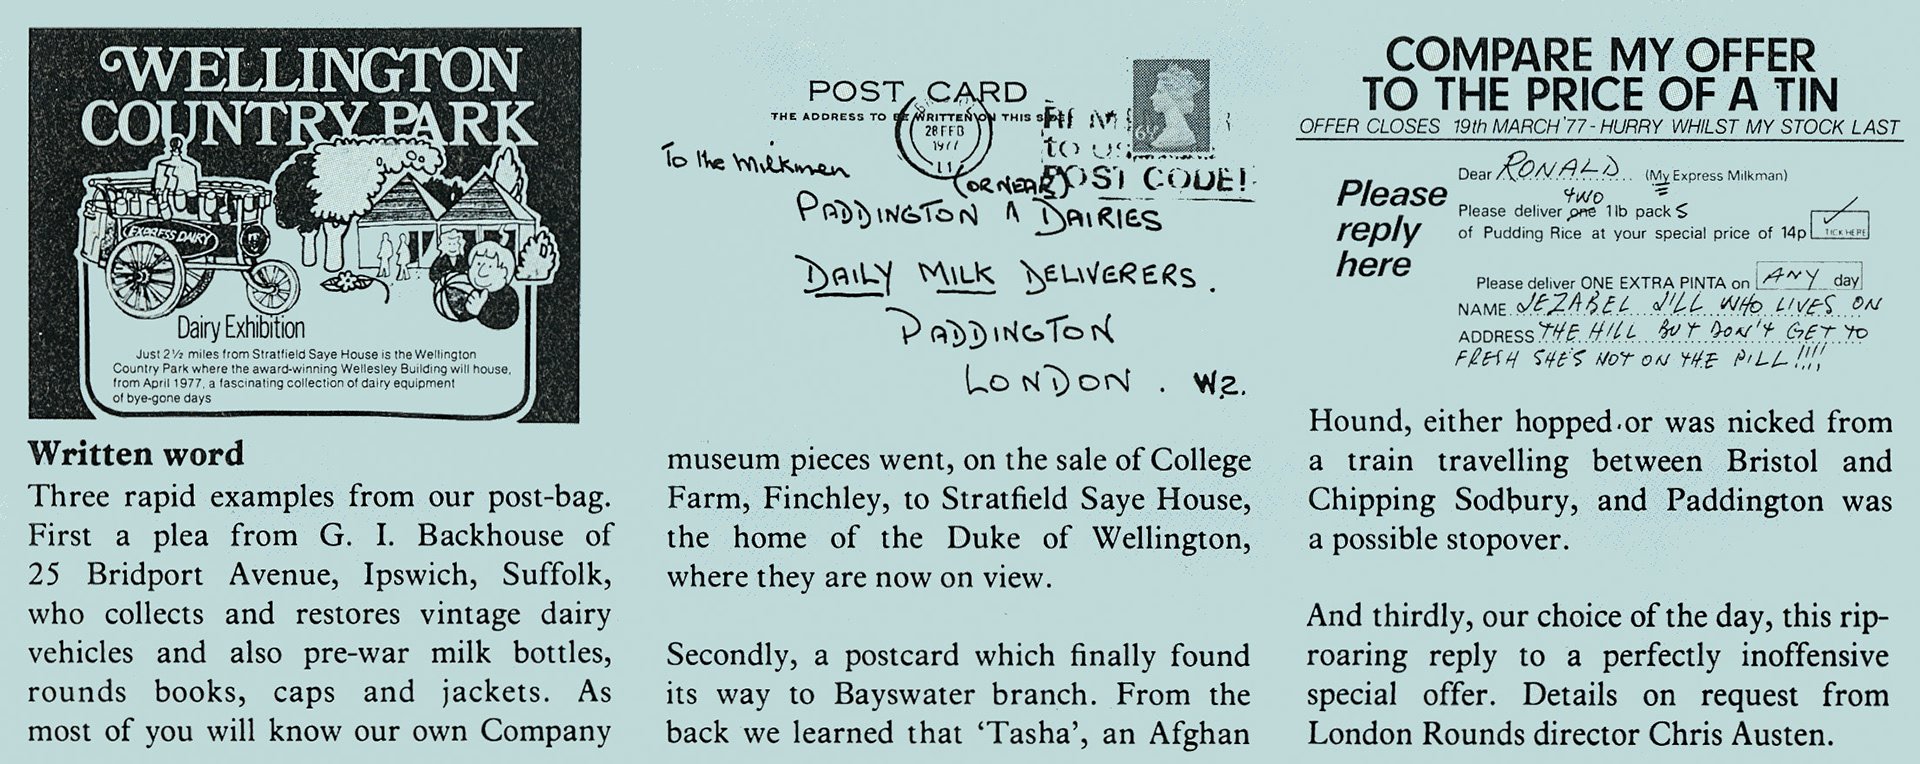 WELLINGTON
COUNTRY PARK
EXPRESS DAIRY
Dairy Exhibition
Just 2½ miles from Stratfield Saye House is the Wellington
Country Park where the award-winning Wellesley Building will house,
from April 1977, a fascinating collection of dairy equipment
of bye-gone days
Written word
Three rapid examples from our post-bag.
First a plea from G. I. Backhouse of
25 Bridport Avenue, Ipswich, Suffolk,
who collects and restores vintage dairy
vehicles and also pre-war milk bottles,
rounds books, caps and jackets. As
most of you will know our own Company
POST CARD
THE ADDRESS TO BE WRITTEN ON THIS SIDE
28 FEB
1977
11
6½
POST CODE!
To the Milkmen
(OR NEAR)
PADDINGTON ʌ DAIRIES
DAILY MILK DELIVERERS.
PADDINGTON
LONDON. W2.
museum pieces went, on the sale of College
Farm, Finchley, to Stratfield Saye House,
the home of the Duke of Wellington,
where they are now on view.
Secondly, a postcard which finally found
its way to Bayswater branch. From the
back we learned that ‘Tasha’, an Afghan
COMPARE MY OFFER
TO THE PRICE OF A TIN
OFFER CLOSES 19th MARCH '77 - HURRY WHILST MY STOCK LAST
Please
reply
here
Dear RONALD (My Express Milkman)
TWO
Please deliver one 1lb packS
of Pudding Rice at your special price of 14p TICK HERE
Please deliver ONE EXTRA PINTA on ANY day
NAME JEZABEL JILL WHO LIVES ON
ADDRESS THE HILL BUT DON'T GET TO
FRESH SHE'S NOT ON THE PILL!!!!
Hound, either hopped or was nicked from
a train travelling between Bristol and
Chipping Sodbury, and Paddington was
a possible stopover.
And thirdly, our choice of the day, this rip-
roaring reply to a perfectly inoffensive
special offer. Details on request from
London Rounds director Chris Austen.